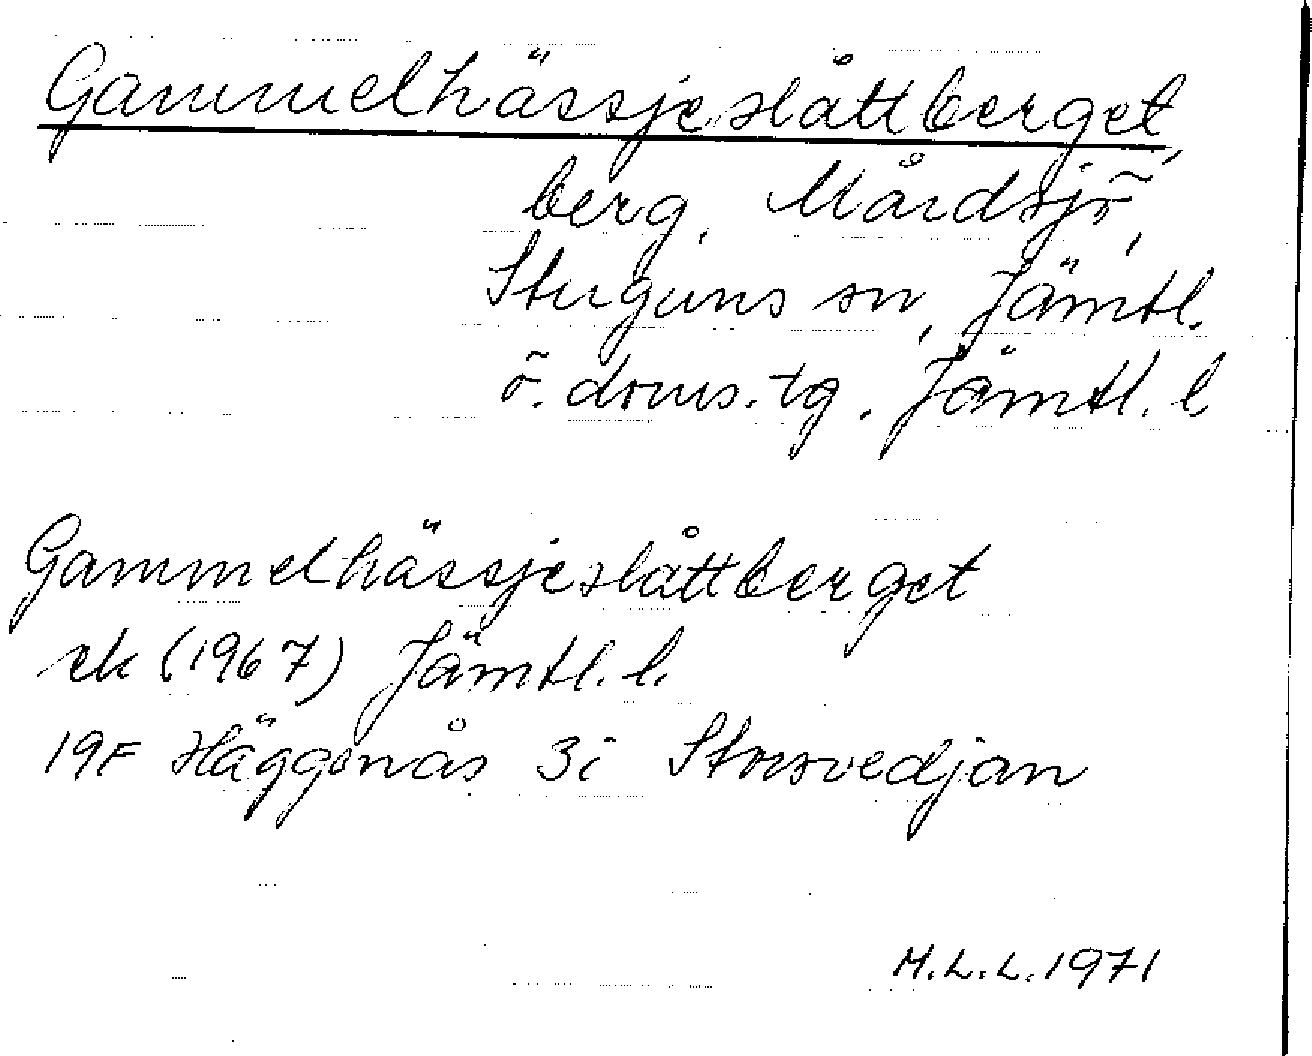 Gammelhässjeslåttberget,
berg, Mårdsjö,
Stuguns sn, Jämtl.
ö. doms.tg. Jämtl. l
Gammelhässjeslåttberget
ek (1967) Jämtl. l.
19F Häggenås 3i Storsvedjan
M.L.L. 1971